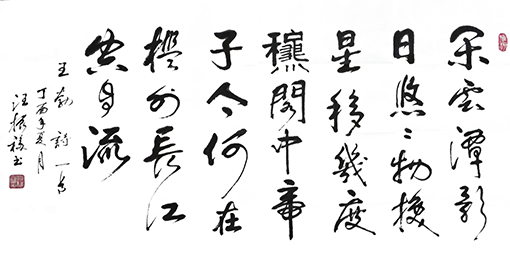 闲雲潭影
日悠悠物換
星移幾度
龝閣中帝
子今何在
檻外長江
空自流
王勃詩一首
丁酉年夏月
汪振书